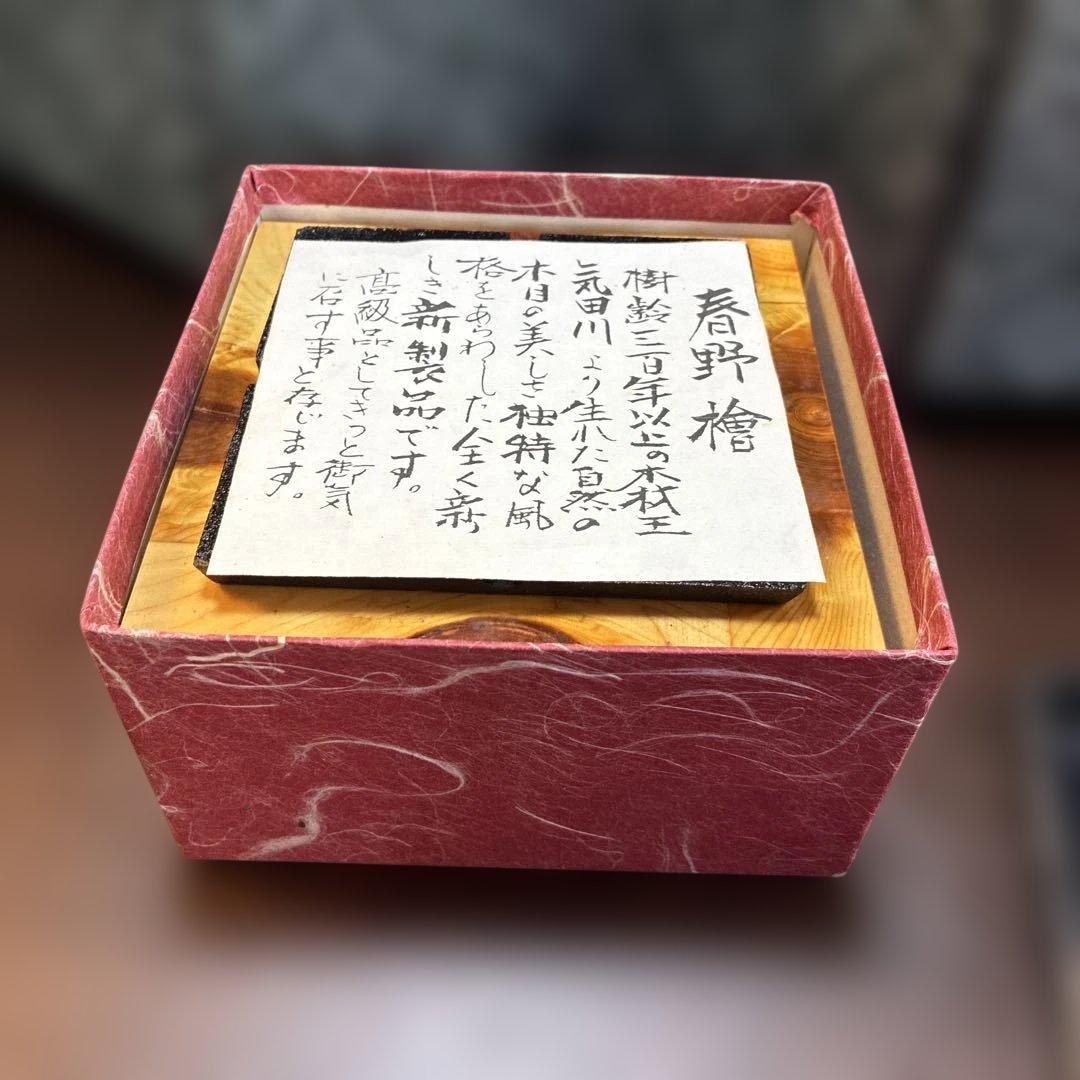 春野檜
樹齢三百年以上の木材王
と気田川より生れた自然の
木目の美しさ独特な風
格をあらわした全く新
しき新製品です。
高級品としてきっと御気
に召す事と存じます。